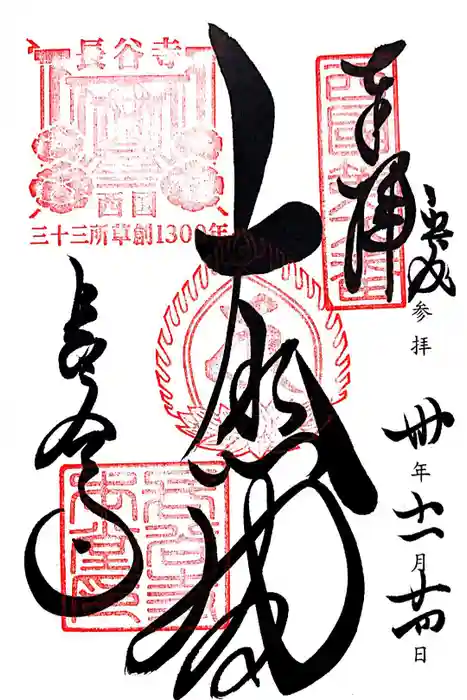 奉拝
平成
参拝
卅年十一月廿四日
大悲閣
長谷寺
長谷寺
西国
三十三所草創1300年